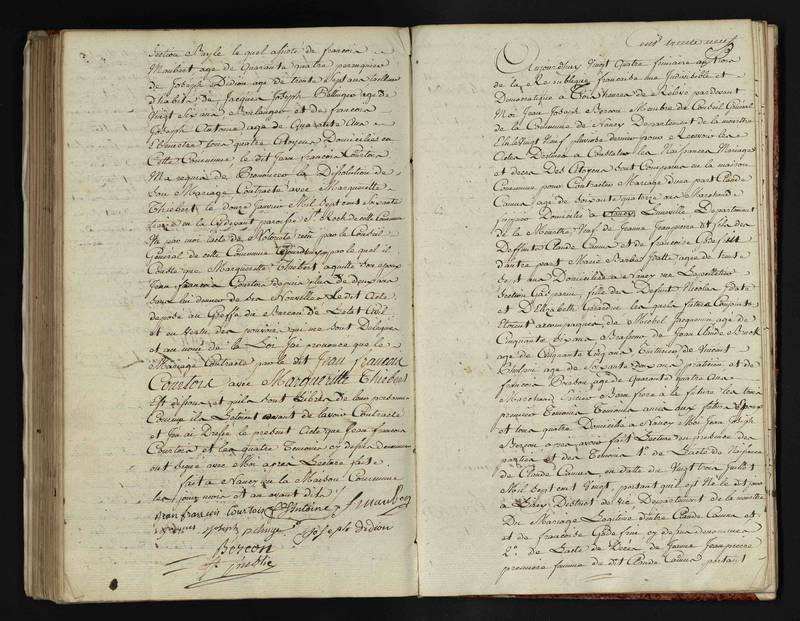 Section Bayle le quel assisté de françois
Maubert agé de Quarante quatre perruquier
de Joseph Didion agé de trente Sept ans tailleur
d'habits de Jacques Joseph agé de
Vingt Six ans Boulanger et de françois
Joseph Antoine agé de Quarante ans
tous quatre Citoyens Domiciliés en
Cette Commune le dit Jean françois Courtois
M'a requis de prononcer la Dissolution de
Son Mariage Contracté avec Marguerite
Thiebert le douze Janvier Mil Sept cent Soixante
en la cydevant paroisse St Roch de cette Commune
Vu par moi l'acte de Notoriété reçu par le Conseil
Général de cette Commune par le quel il
Conste que Marguerite Thiebert a quitté Son époux
Jean françois Courtois depuis plus de deux ans
Sans lui donner de Ses Nouvelles Le dit Acte
déposé au Greffe du Bureau de L'état Civil
et en Vertu des pouvoirs qui me Sont Délégués
et au nom de la Loi J'ai prononcé que le
Mariage Contracté par le dit Jean françois
Courtois avec Marguerite Thiebert
Est dissous et qu'ils Sont Libres de leur personne
Comme ils L'étoient avant de l'avoir Contracté
et J'en ai Dressé le present Acte que Jean francois
Courtois et les quatre Temoins cy dessus denommés
ont Signé avec Moi après Lecture faite
fait a Nancy en la Maison Commune
les jour mois et an avant dits
Jean francois Courtois Antoine f maubert
Joseph Joseph didion
Berzon
f public
cent trente neuf
Aujourd'huy Vingt Quatre frimaire an trois
de la République françoise une Indivisible et
Démocratique a trois heures de Relevé pardevant
Moi Jean Joseph Berzon Membre du Conseil Général
de la Commune de Nancy Département de la Meurthe
Elu le Vingt Neuf pluviose dernier pour Recevoir les
Actes Destinés a Constater les Naissances Mariages
et décès Des Citoyens Sont Comparus en la maison
Commune pour Contracter Mariage d'une part Claude
Camus agé de Soixante quatorze ans Marchand
Domicilié a Nancy Luneville Département
de la Meurthe Veuf de Jeanne Jeanpierre et fils des
Deffunts Claude Camus et de francoise
d'autre part Marie Barbe agée de trente
Sept ans Domiciliée a Nancy
Section fille des Defunts Nicolas
et D'Elizabeth Girardin les quels futurs Conjoints
Etoient accompagnés de Michel Jacquemin agé de
Cinquante Six ans de Jean Claude
agé de Cinquante Cinq ans de Vincent
agé de Soixante Dix ans praticien et de
francois agé de Quarante quatre ans
Marchand frere a la future les trois
premiers Temoins amis aux futurs Epoux
et tous quatre Domiciliés a Nancy Moi Jean Joseph
Berzon après avoir fait Lecture en présence des
parties et des Temoins 1º de L'acte de Naissance
de Claude Camus en datte du Vingt trois Juillet
Mil Sept cent Vingt, portant qu'il est Né le dit jour
a District de Vic Département de la meurthe
Du Mariage Légitime d'entre Claude Camus et
et de francoise cy dessus denommés
2º de L'acte de Décès de Jeanne Jeanpierre
premiere femme du dit Claude Camus portant